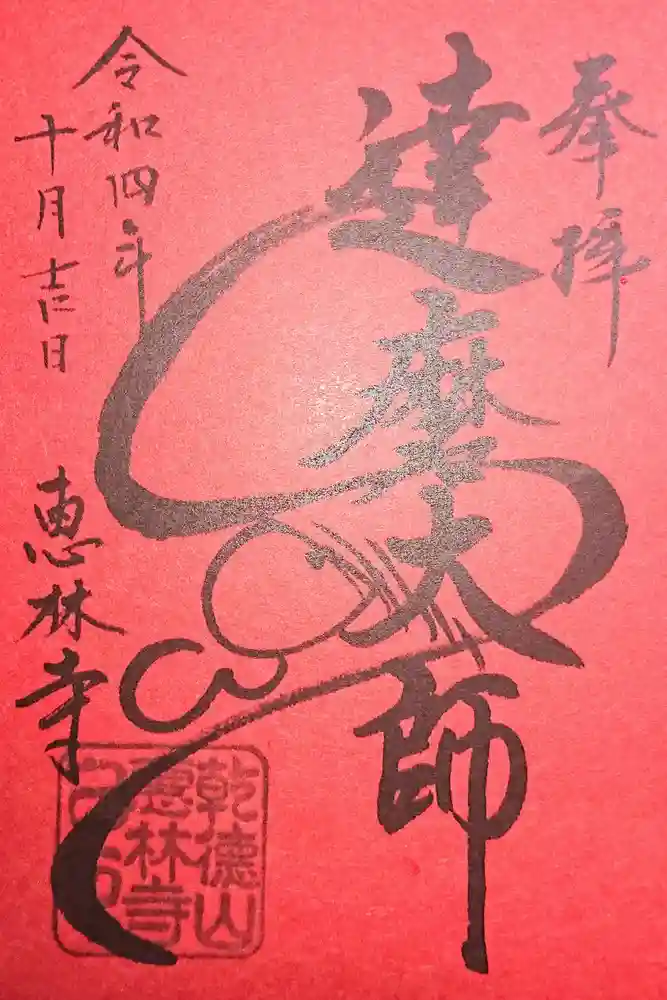 奉拝
達磨大師
令和四年
十月吉日
恵林寺
乾徳山
恵林寺